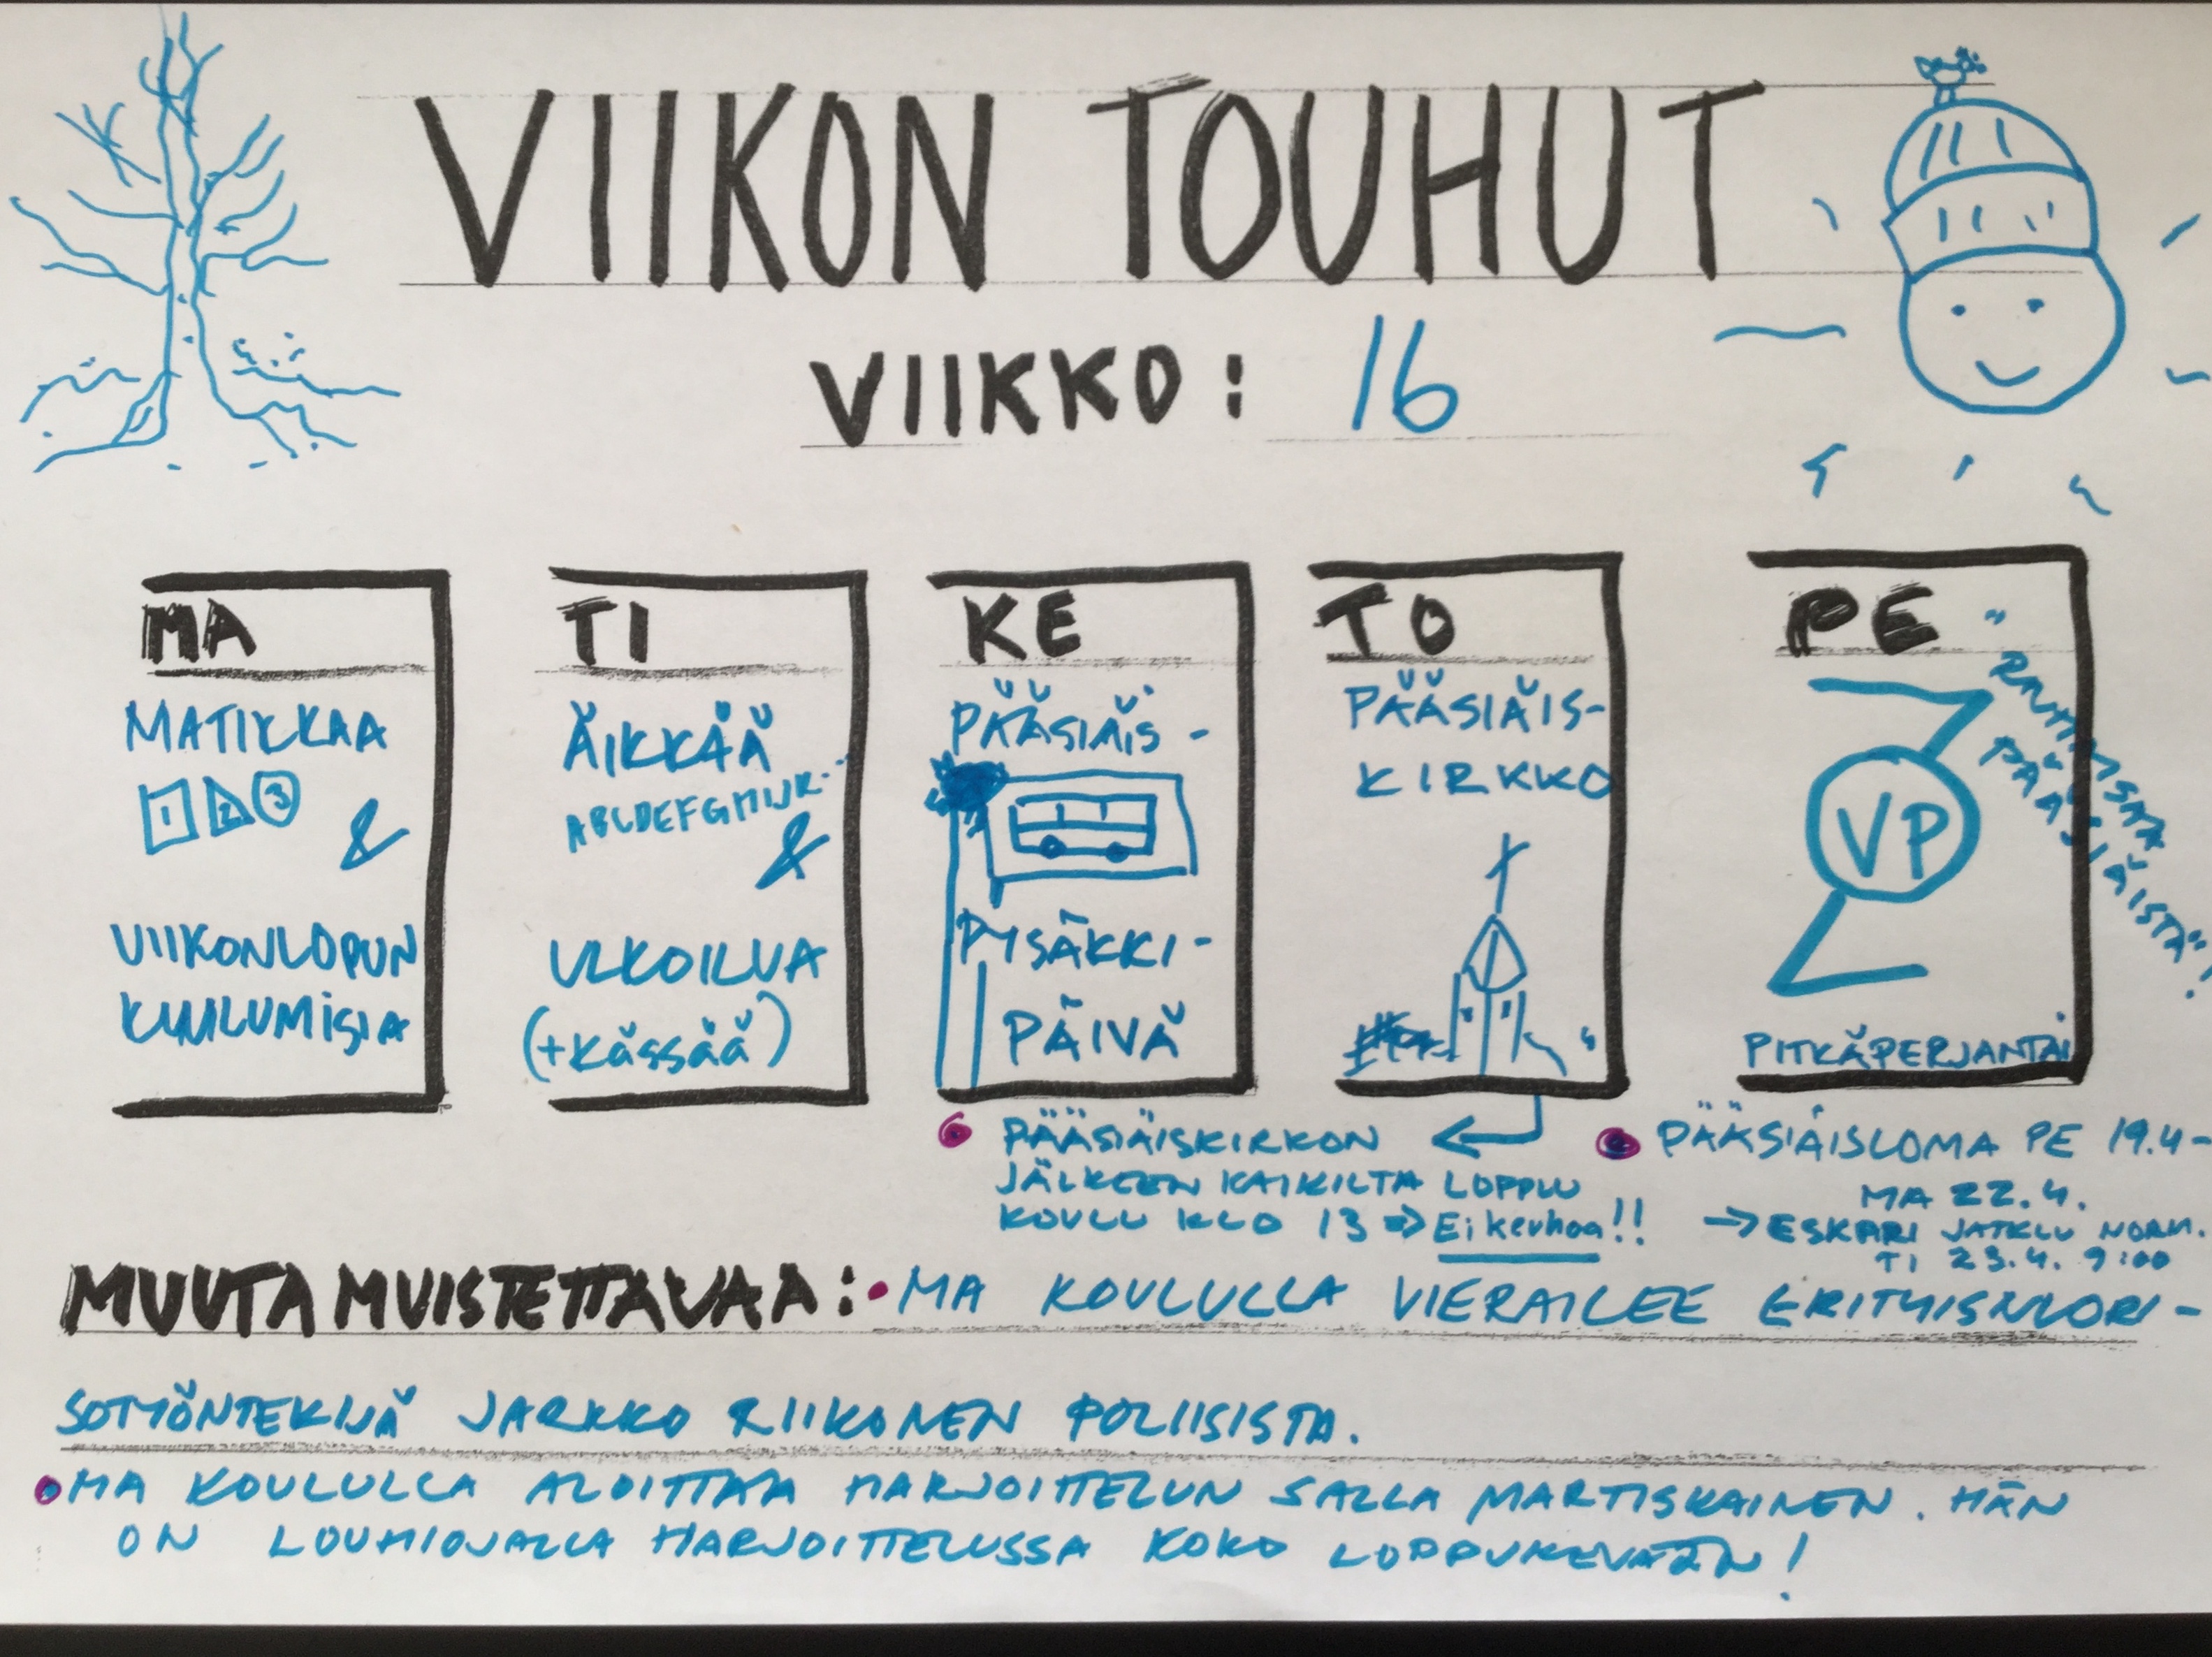 VIIKON TOUHUT
VIIKKO: 16
MA
MATIKKAA
1 2 3 &
VIIKONLOPUN
KUULUMISIA
TI
ÄIKKÄÄ
ABCDEFGHIJK...
&
ULKOILUA
(+KÄSSÄÄ)
KE
PÄÄSIÄIS-
PYSÄKKI-
PÄIVÄ
TO
PÄÄSIÄIS-
KIRKKO
PE
VP
"RAUHAISAA
PÄÄSIÄISTÄ"!
PITKÄPERJANTAI
PÄÄSIÄISKIRKON
JÄLKEEN KAIKILTA LOPPUU
KOULU KLO 13 → Ei kerhoa!!
PÄÄSIÄISLOMA PE 19.4-
MA 22.4.
→ ESKARI JATKUU NORM.
TI 23.4. 9:00
MUUTA MUISTETTAVAA: • MA KOULULLA VIERAILEE ERITYISNUORI-
SOTYÖNTEKIJÄ JARKKO RIIKONEN POLIISISTA.
• MA KOULULLA ALOITTAA HARJOITTELUN SALLA MARTISKAINEN. HÄN
ON LOUHIOJALLA HARJOITTELUSSA KOKO LOPPUKEVÄÄN!